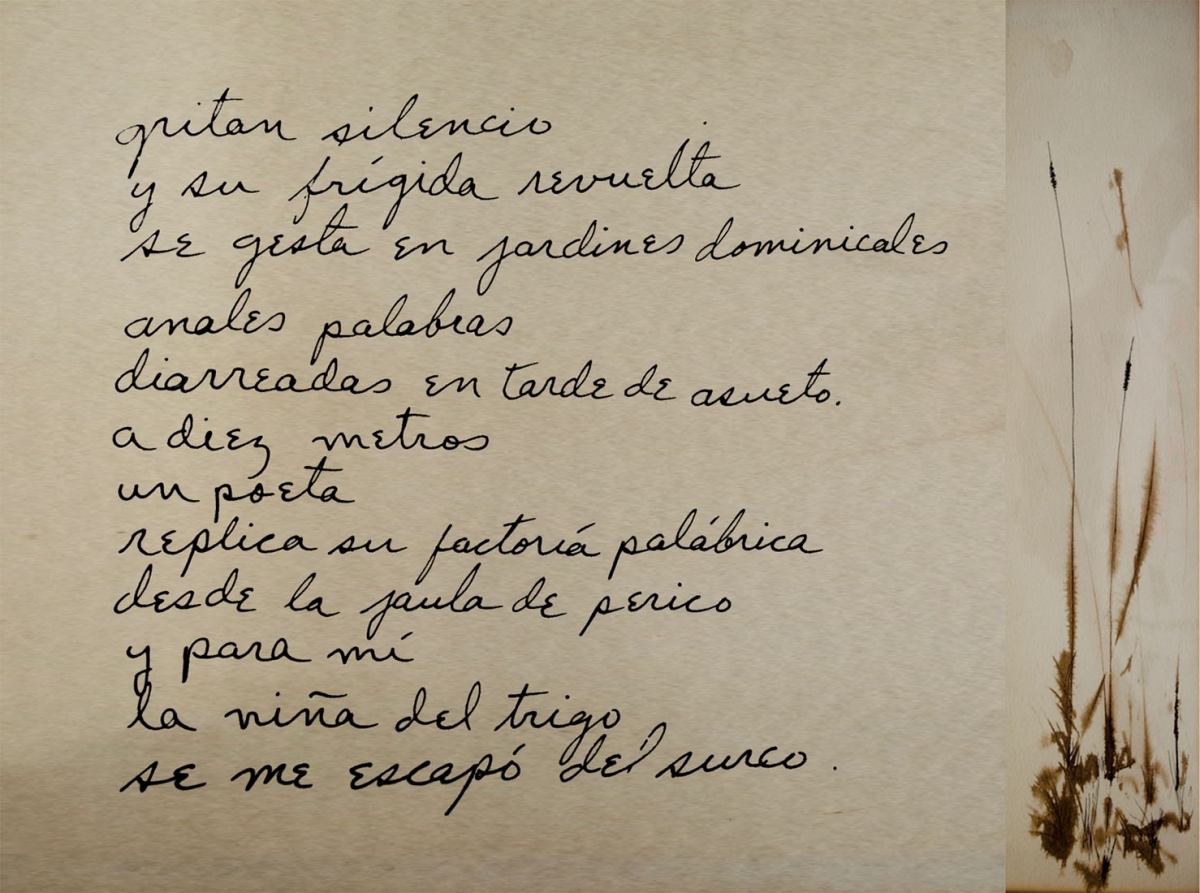 gritan silencio
y su frígida revuelta
se gesta en jardines dominicales
anales palabras
diarreadas en tarde de asueto.
a diez metros
un poeta
replica su factoría palábrica
desde la jaula de perico
y para mí
la niña del trigo
se me escapó del surco.